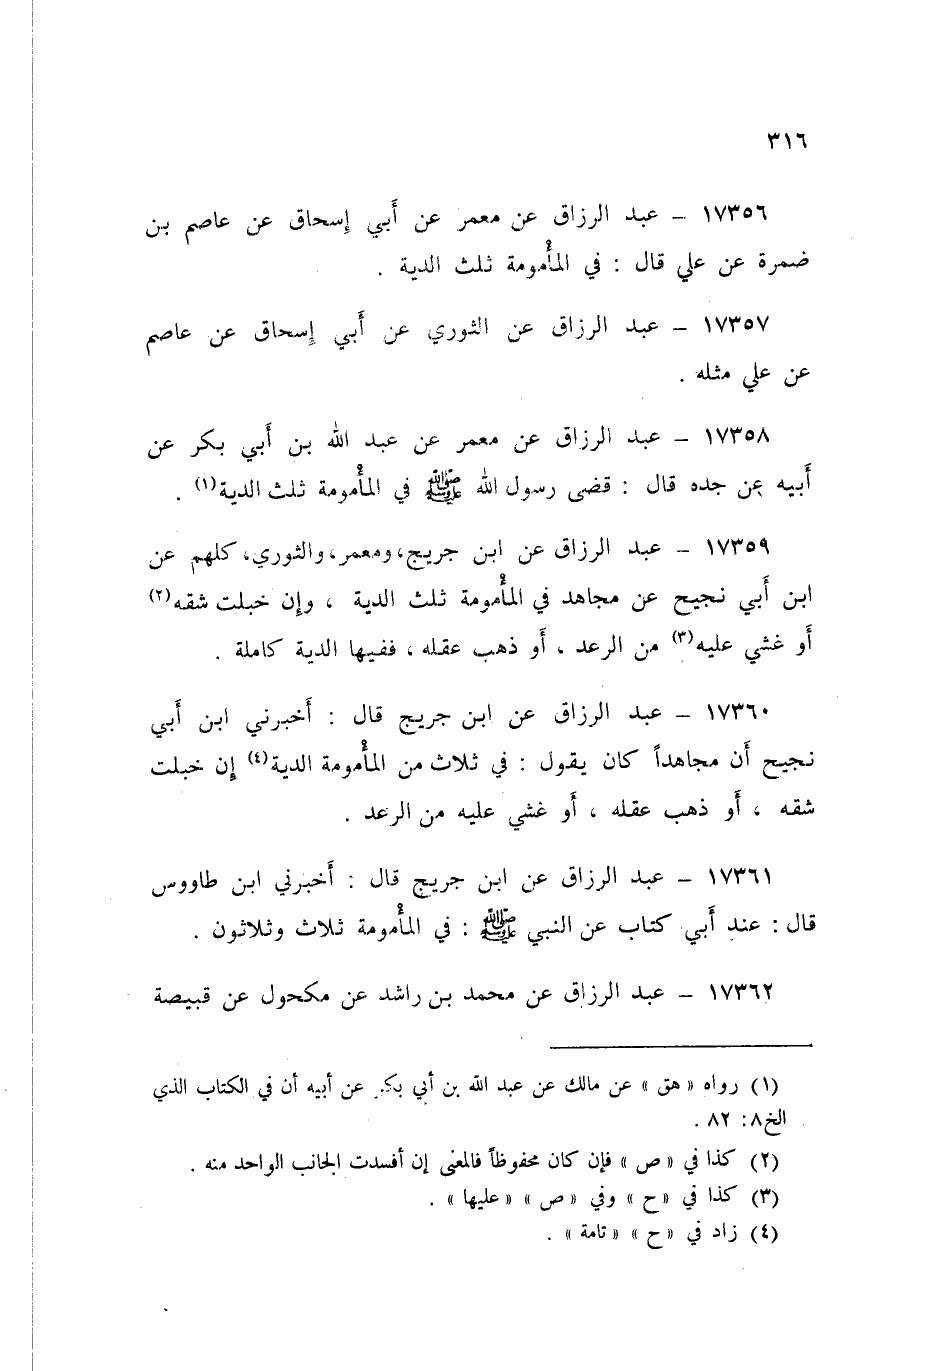 ٣١٦
١٧٣٥٦ – عبد الرزاق عن معمر عن أَبي إسحاق عن عاصم بن
ضمرة عن علي قال : في المأْمومة ثلث الدية .
١٧٣٥٧ – عبد الرزاق عن الثوري عن أَبي إسحاق عن عاصم
عن علي مثله .
١٧٣٥٨ – عبد الرزاق عن معمر عن عبد الله بن أَبي بكر عن
أَبيه عن جده قال : قضى رسول الله ﷺ في المأْمومة ثلث الدية(١) .
١٧٣٥٩ – عبد الرزاق عن ابن جريج، ومعمر، والثوري، كلهم عن
ابن أَبي نجيح عن مجاهد في المأْمومة ثلث الدية ، وإن خبلت شقه(٢)
أَو غشي عليه(٣) من الرعد ، أَو ذهب عقله ، ففيها الدية كاملة .
١٧٣٦٠ – عبد الرزاق عن ابن جريج قال : أَخبرني ابن أَبي
نجيح أَن مجاهداً كان يقول : في ثلاث من المأْمومة الدية(٤) إن خبلت
شقه ، أَو ذهب عقله ، أَو غشي عليه من الرعد .
١٧٣٦١ – عبد الرزاق عن ابن جريج قال : أَخبرني ابن طاووس
قال : عند أَبي كتاب عن النبي ﷺ : في المأْمومة ثلاث وثلاثون .
١٧٣٦٢ – عبد الرزاق عن محمد بن راشد عن مكحول عن قبيصة
(١) رواه « هق » عن مالك عن عبد الله بن أبي بكر عن أبيه أن في الكتاب الذي
الخ ٨: ٨٢ .
(٢) كذا في « ص » فإن كان محفوظاً فالمعنى إن أفسدت الجانب الواحد منه .
(٣) كذا في « ح » وفي « ص » « عليها » .
(٤) زاد في « ح » « تامة » .